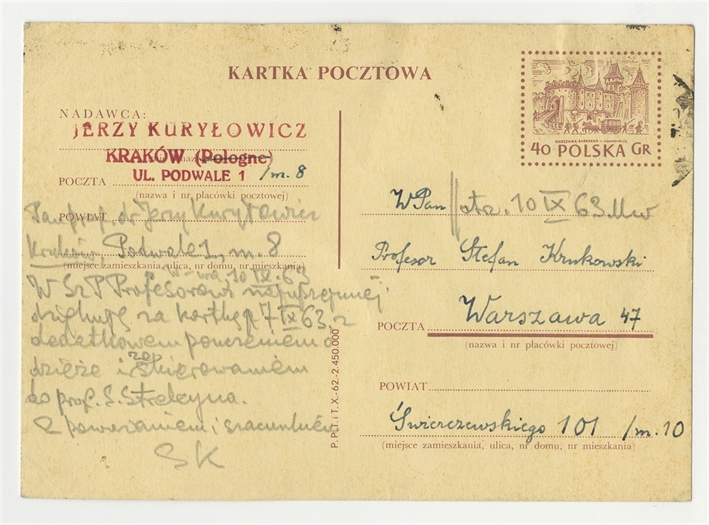 KARTKA POCZTOWA
NADAWCA:
JERZY KURYŁOWICZ
KRAKÓW (Pologne)
UL. PODWALE 1 /m. 8
POCZTA
(nazwa i nr placówki pocztowej)
Pan prof. dr Jerzy Kuryłowicz
POWIAT
Kraków, Podwale 1, m. 8
(miejsce zamieszkania, ulica, nr domu, nr mieszkania)
10 IX 63
W Sz P Profesorowi najuprzejmiej
dziękuję za kartkę z 7 IX 63 z
dodatkowem
i za skierowaniem
do prof. S. Strelcyna.
Z poważaniem i szacunkiem
SK
40 POLSKA GR
WPan
otrz. 10 IX 63
Profesor Stefan Krukowski
Warszawa 47
POCZTA
(nazwa i nr placówki pocztowej)
POWIAT
Świerczewskiego 101 /m. 10
(miejsce zamieszkania, ulica, nr domu, nr mieszkania)
P. P. T. i T. X.-62-2.450.000